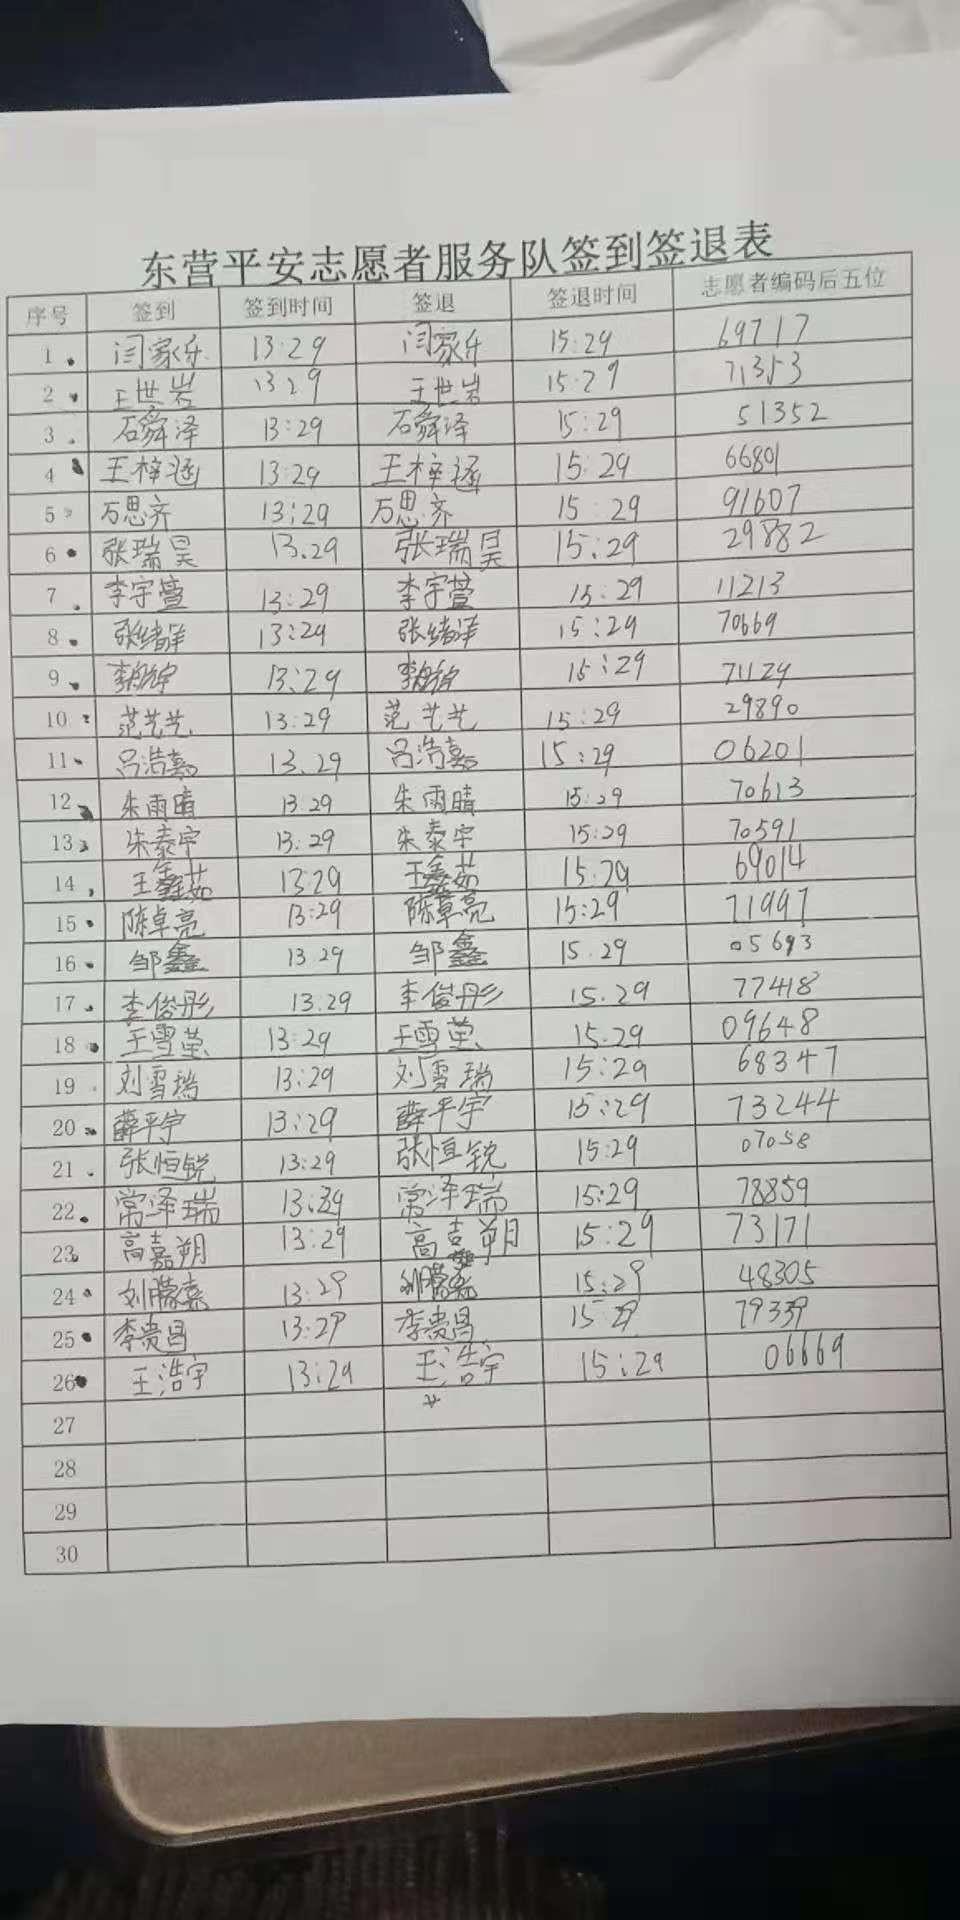 东营平安志愿者服务队签到签退表
序号 签到 签到时间 签退 签退时间 志愿者编码后五位
1 闫家乐 13:29 闫家乐 15:29 69717
2 王世岩 13:29 王世岩 15:29 71353
3 石舜泽 13:29 石舜泽 15:29 51352
4 王梓涵 13:29 王梓涵 15:29 66801
5 万思齐 13:29 万思齐 15:29 91607
6 张瑞昊 13.29 张瑞昊 15:29 29882
7 李宇萱 13:29 李宇萱 15:29 11213
8 张绪洋 13:29 张绪洋 15:29 70669
9 13:29 15:29 71129
10 范艺艺 13:29 范艺艺 15:29 29890
11 吕浩嘉 13.29 吕浩嘉 15:29 06201
12 朱雨晴 13:29 朱雨晴 15:29 70613
13 朱泰宇 13:29 朱泰宇 15:29 70591
14 王鑫茹 13:29 王鑫茹 15:29 69014
15 陈卓亮 13:29 陈卓亮 15:29 71997
16 邹鑫 13.29 邹鑫 15.29 05693
17 李俊彤 13.29 李俊彤 15.29 77418
18 王雪莹 13:29 王雪莹 15.29 09648
19 刘雪瑞 13:29 刘雪瑞 15:29 68347
20 薛平宇 13:29 薛平宇 15:29 73244
21 张恒锐 13:29 张恒锐 15:29 07058
22 常泽瑞 常泽瑞 15:29 78859
23 高嘉朔 13:29 高吉朔 15:29 73171
24 刘朦嘉 13:29 刘朦 15:29 48305
25 李贵昌 13:29 李贵昌 15:29 79339
26 王浩宇 13:29 王浩宇 15:29 06669
27
28
29
30